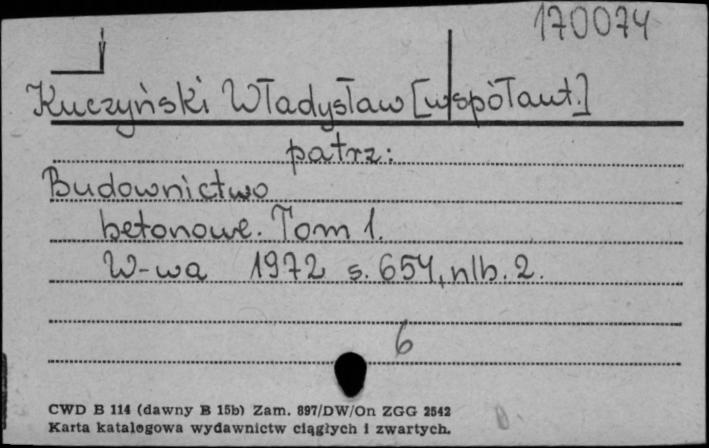 170074
Kuczyński Władysław [współaut.]
patrz:
Budownictwo
betonowe. Tom 1.
W-wa 1972 s. 654, nlb. 2.
6
CWD B 114 (dawny B 15b) Zam. 897/DW/On ZGG 2542
Karta katalogowa wydawnictw ciągłych i zwartych.